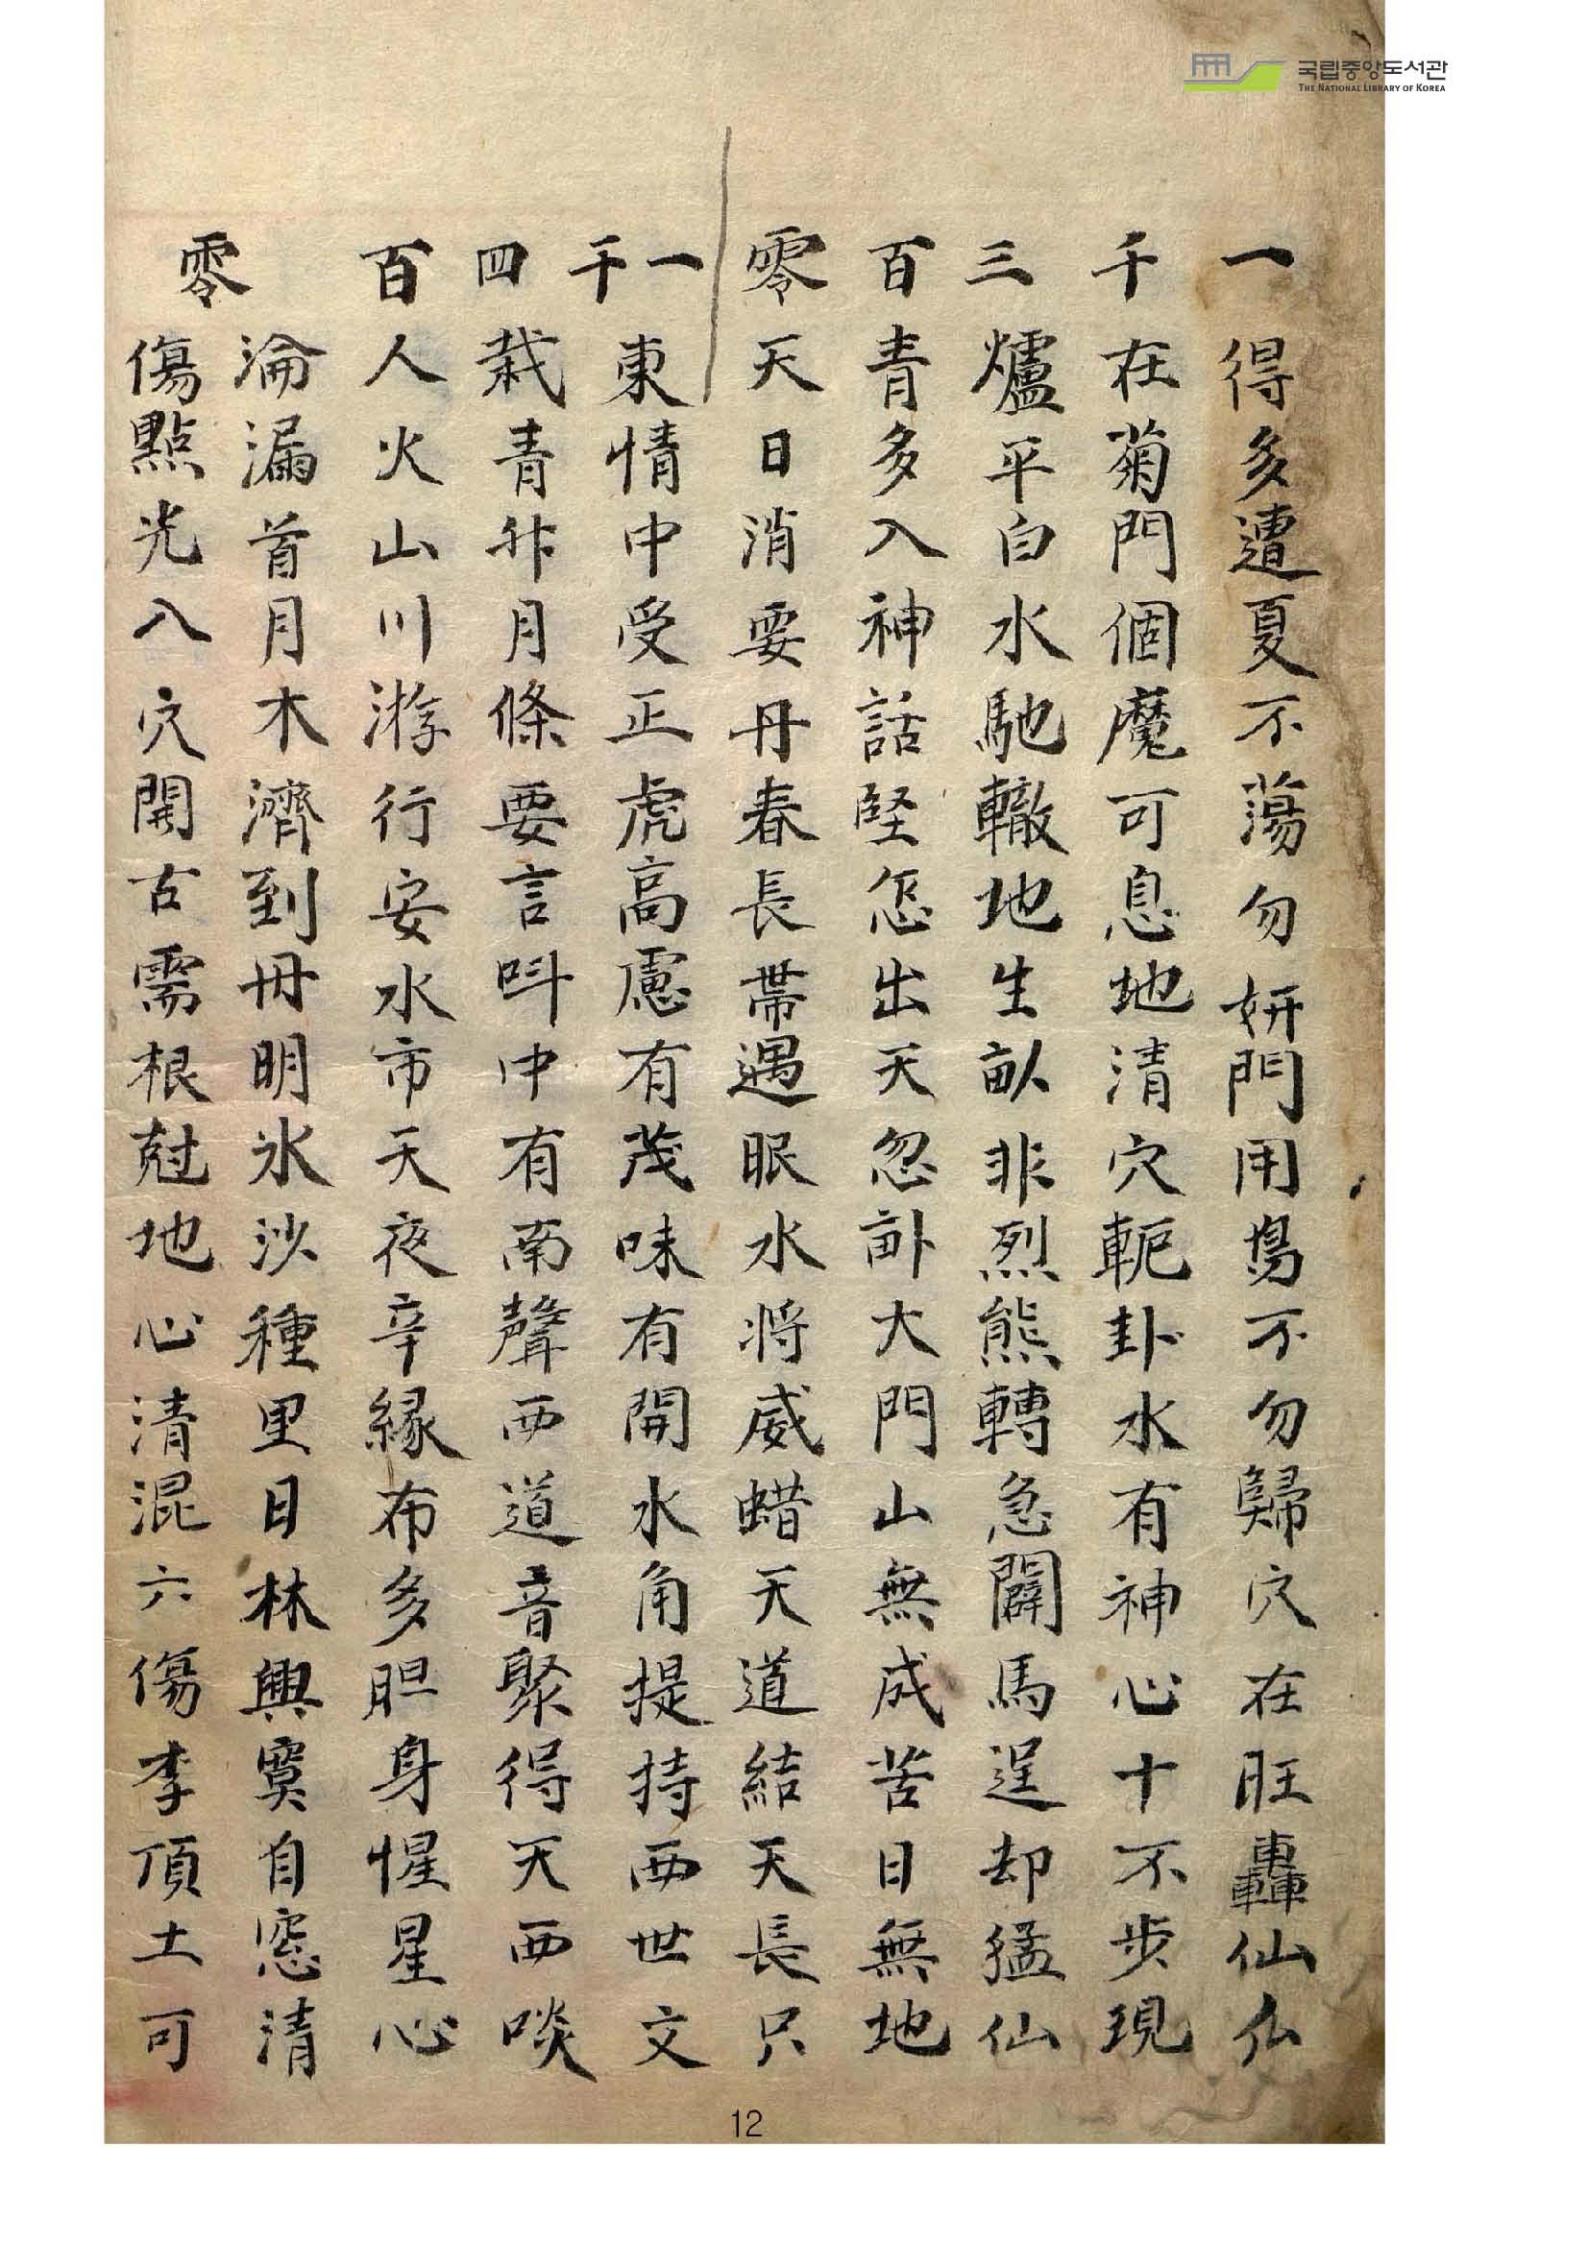 국립중앙도서관
THE NATIONAL LIBRARY OF KOREA
一得多遭夏不蕩勿妍門用不勿歸穴在旺轟仙仏
千在菊門個魔可息地清穴軛卦水有神心十不步現
三爐平白水馳轍地生畝非烈熊轉急闢馬逞却猛仙
百青多入神話怪出天忽大門山無成苦日無地
零天日消要丹春長帶遇眠水将威蜡天道結天長只
一千東情中受正虎高慮有茂味有開水角提持西世文
四栽青非月條要言呌中有南聲西道音聚得天西啖
百人火山川游行安水市天夜辛緣布多胆身惺星心
淪漏首月木濟到丹明氷沙種里目林興寞自窓清
零傷點光入穴開古需根尅地心清混六傷李頂土可
12